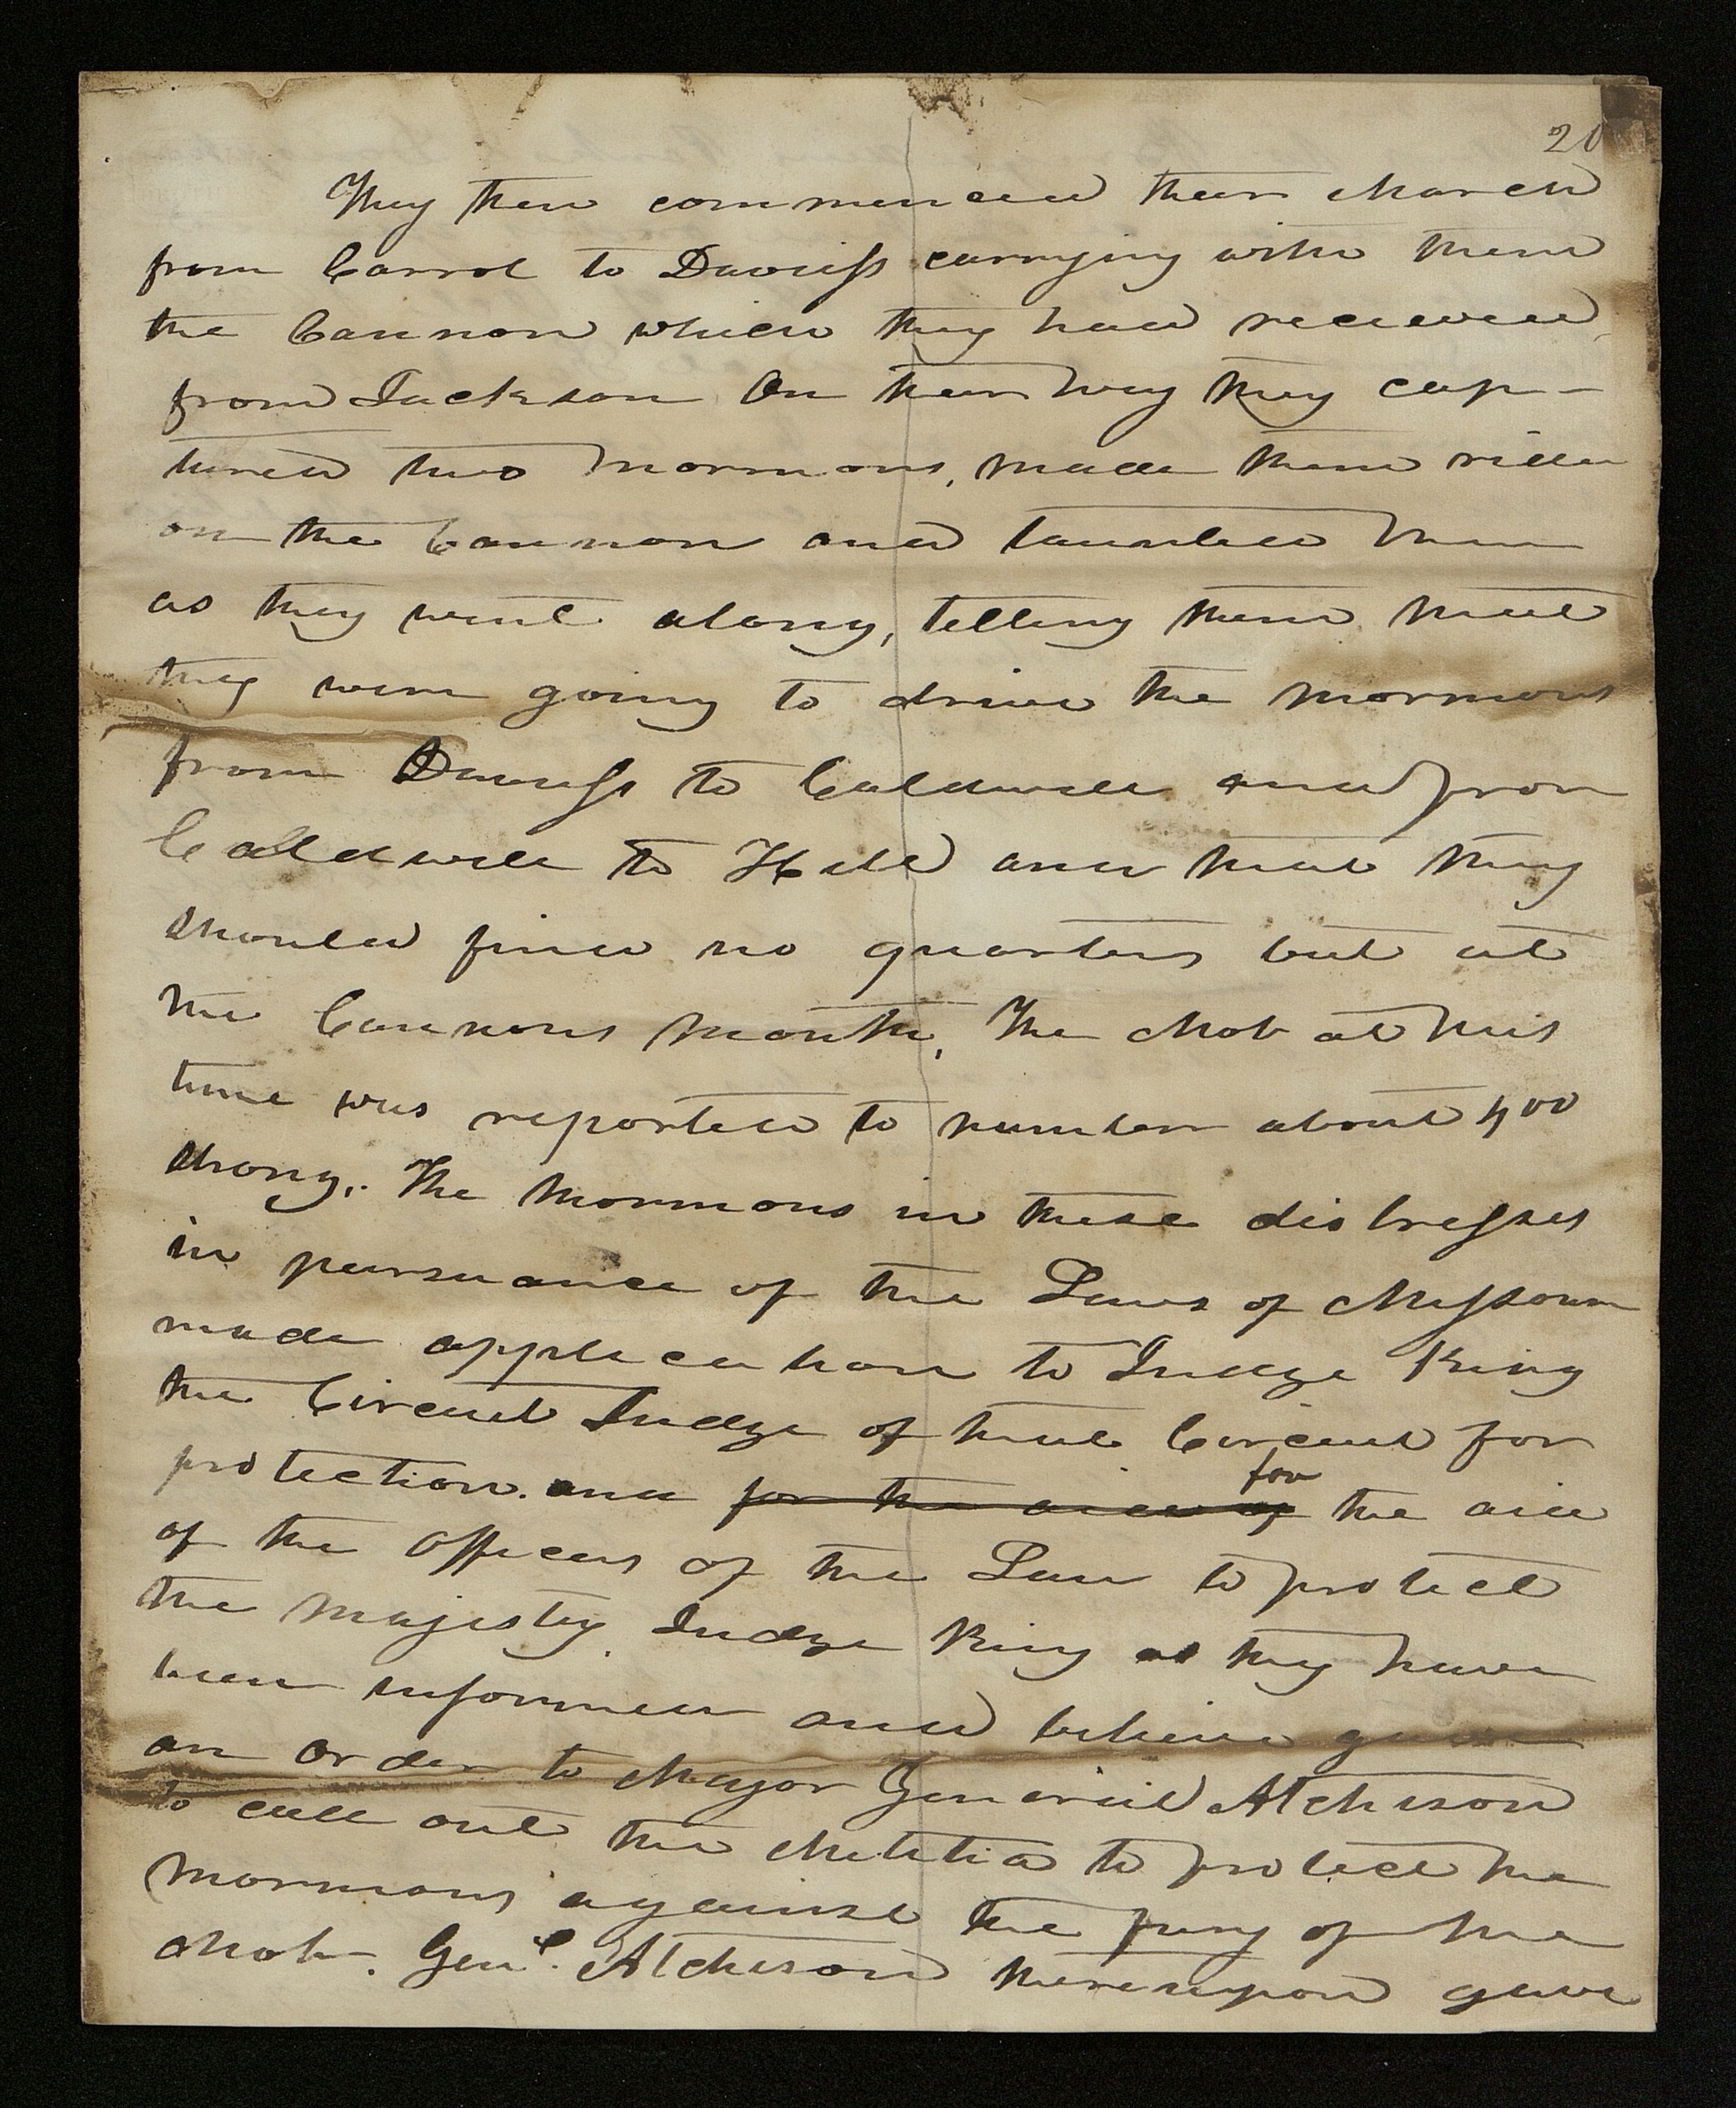 20
They then commenced their March
from Carrol to Daviess carrying with them
the Cannon which they had received
from Jackson On their way they cap-
tured two Mormons, made them ride
on the Cannon and taunted them
as they went along, telling them that
they were going to drive the Mormons
from Daviess to Caldwell and from
Caldwell to Hell and that they
should find no quarters but at
the Cannons Mouth, The Mob at this
time was reported to number about 400
strong. The Mormons in these distresses
in pursuance of the Laws of Missouri
made application to Judge King
the Circuit Judge of that Circuit for
protection. and for the aid of for the aid
of the Officers of the Law to protect
the Majesty. Judge King as they have
been informed and believe gave
an order to Major General Atchison
to call out the Militia to protect the
Mormons against the fury of the
Mob. Genl. Atchison thereupon gave